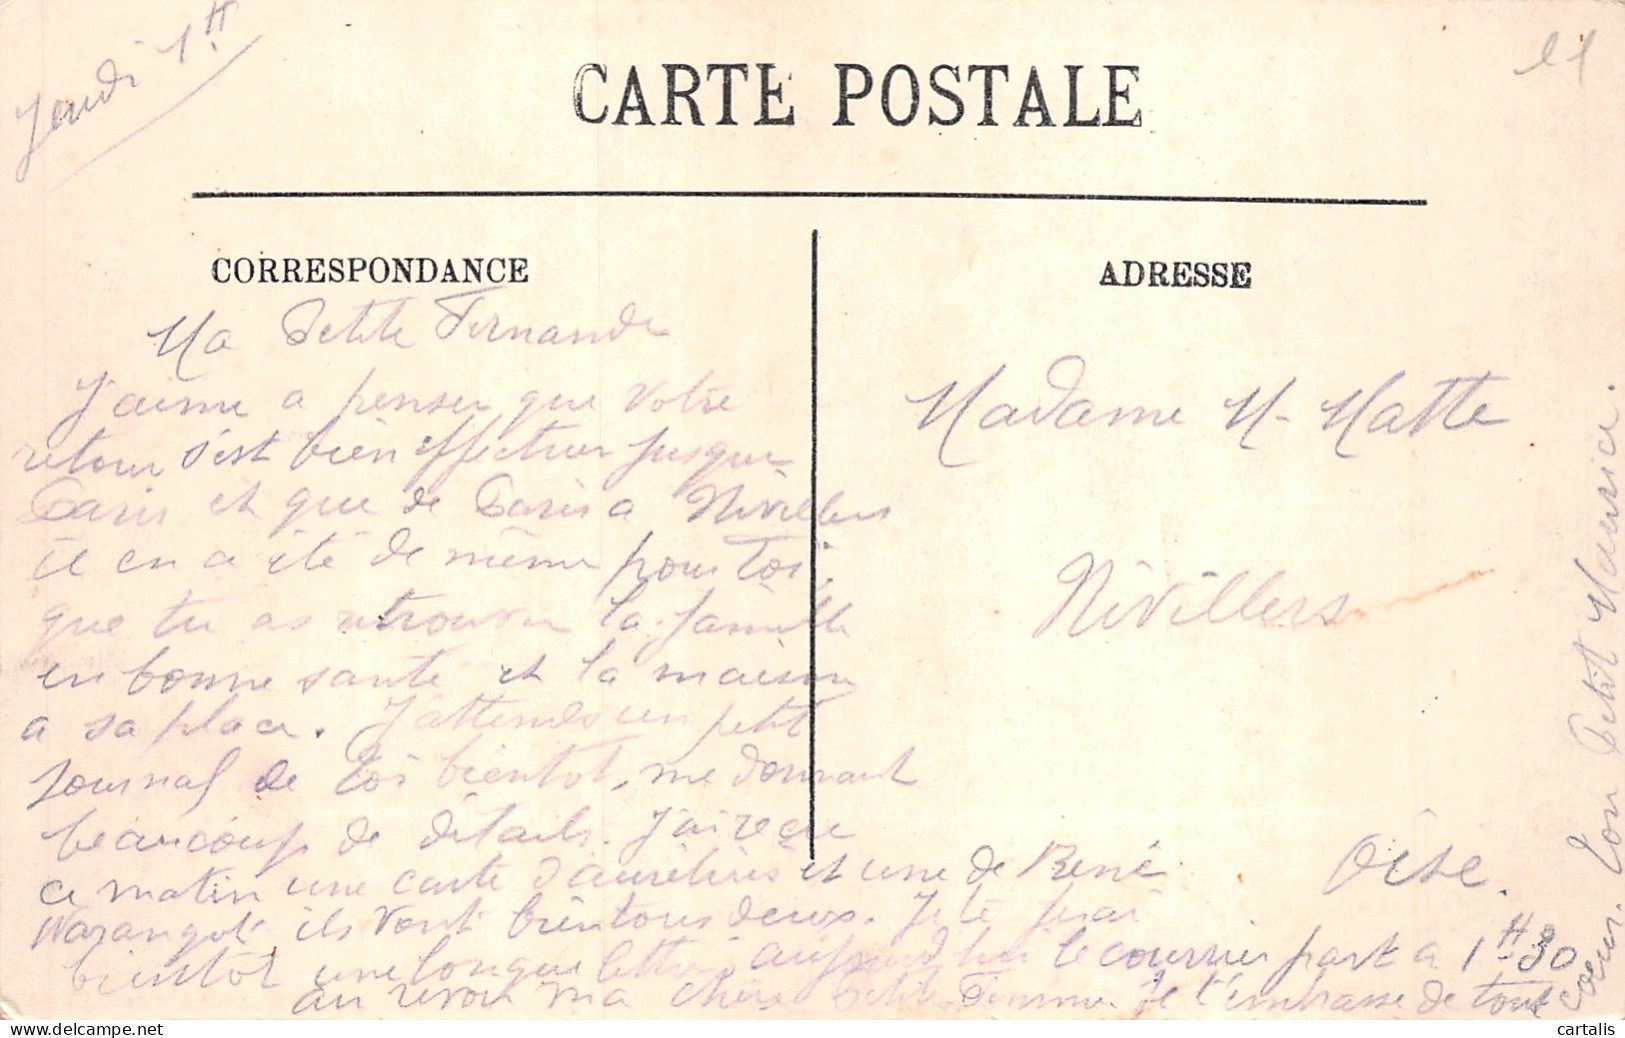 Jeudi 1H
21
CARTE POSTALE
CORRESPONDANCE
ADRESSE
Ma Petite Fernande
J'aime a penser que votre
retour s'est bien effectuer jusque
Paris et que de Paris a Nivillers
il en a été de même pour toi,
que tu as retrouver la famille
en bonne santé et la maison
a sa place. J'attends un petit
journal de toi bientot, me donnant
beaucoup de détails. J'ai reçu
ce matin une carte d'aurélius et une de René
Warangot ils vont bien tous deux. Je te ferai
bientot une longue lettre aujourd'hui le courrier part a 1H30
au revoir ma chère Petite Femme Je t'embrasse de tout
coeur. Ton Petit Maurice.
Madame M. Matte
Nivillers
Oise.
cartalis